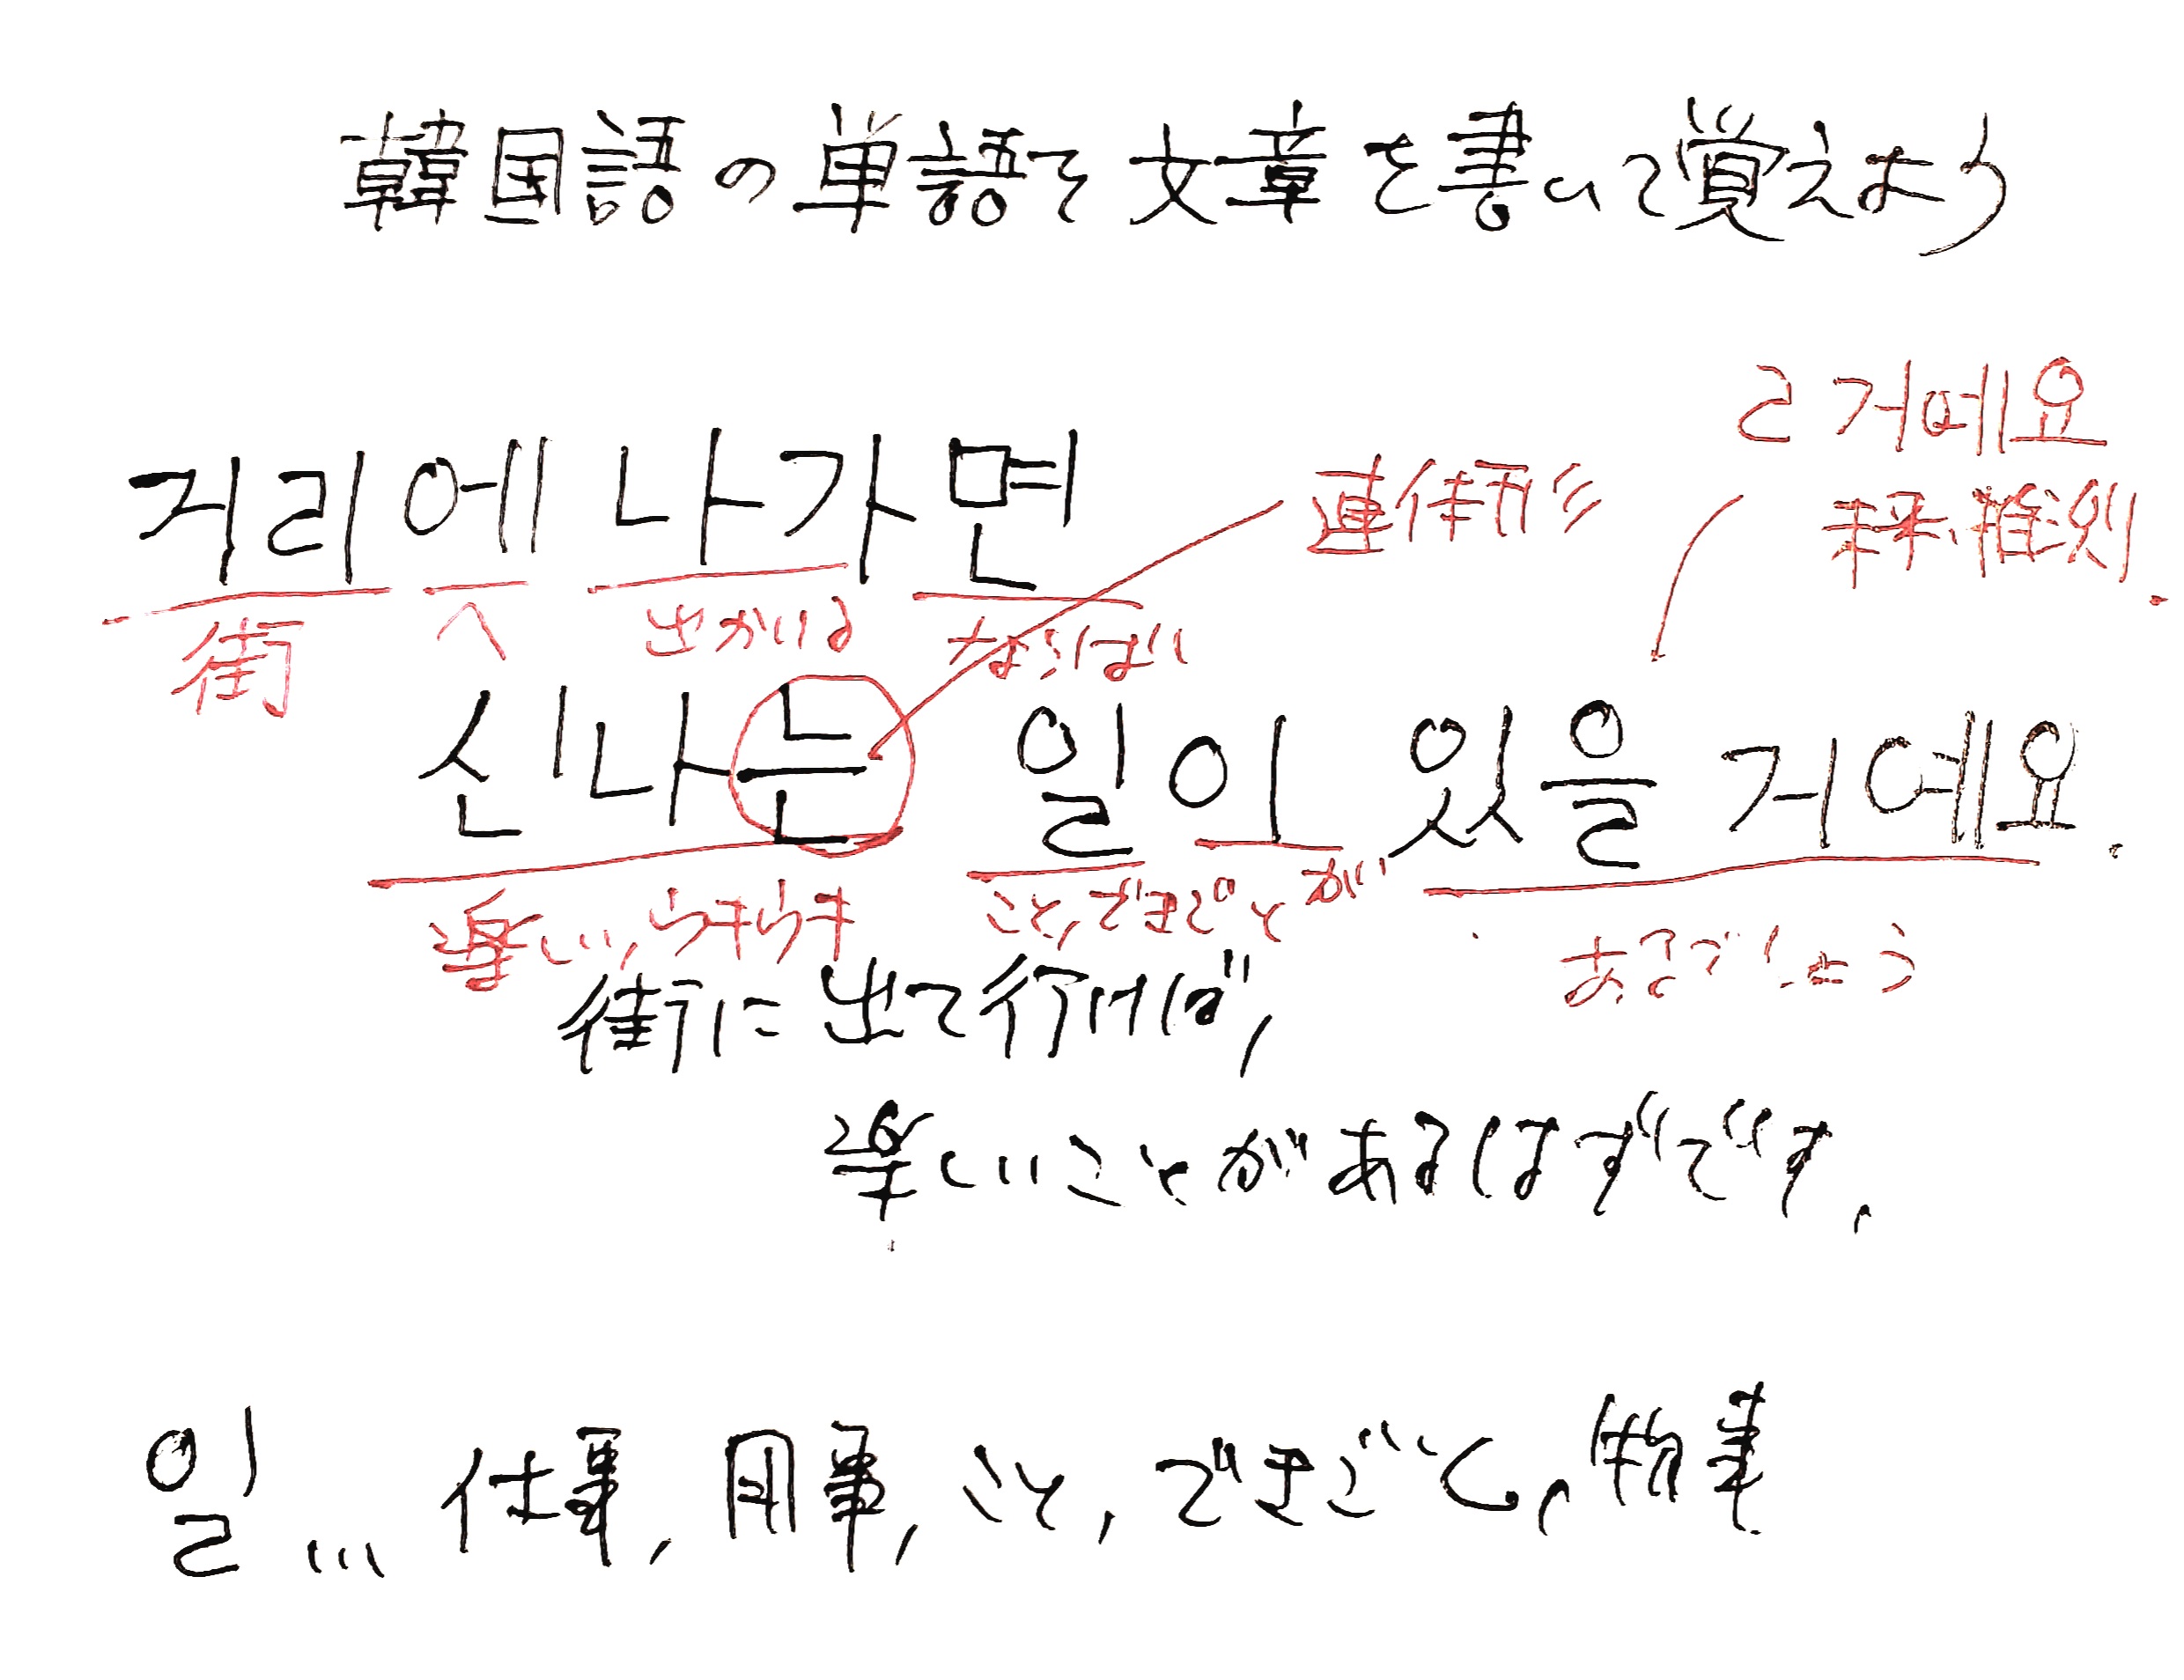 韓国語の単語で文章を書いて覚えよう
ㄹ 거예요
거리에 나가면 連体形 未来、推測.
街 へ 出かける ならば
신나는 일이 있을 거예요.
楽しい, うきうき こと, できごと が あるでしょう
街に出て行けば,
楽しいことがあるはずです.
일... 仕事, 用事, こと, できごと, 物事